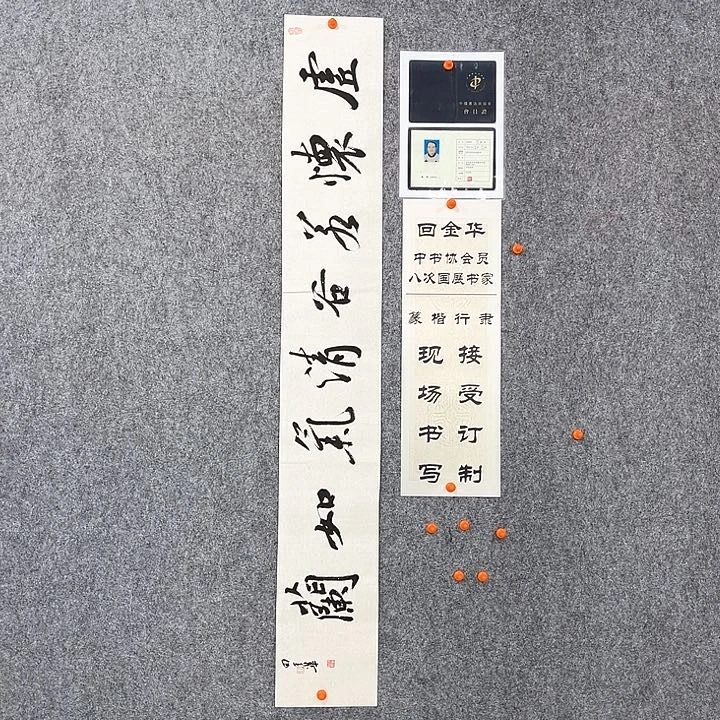 虛懷若谷清氣如蘭
中國書法家協會
會員證
回金华
中书协会员
八次国展书家
篆楷行隶
现场书写
接受订制